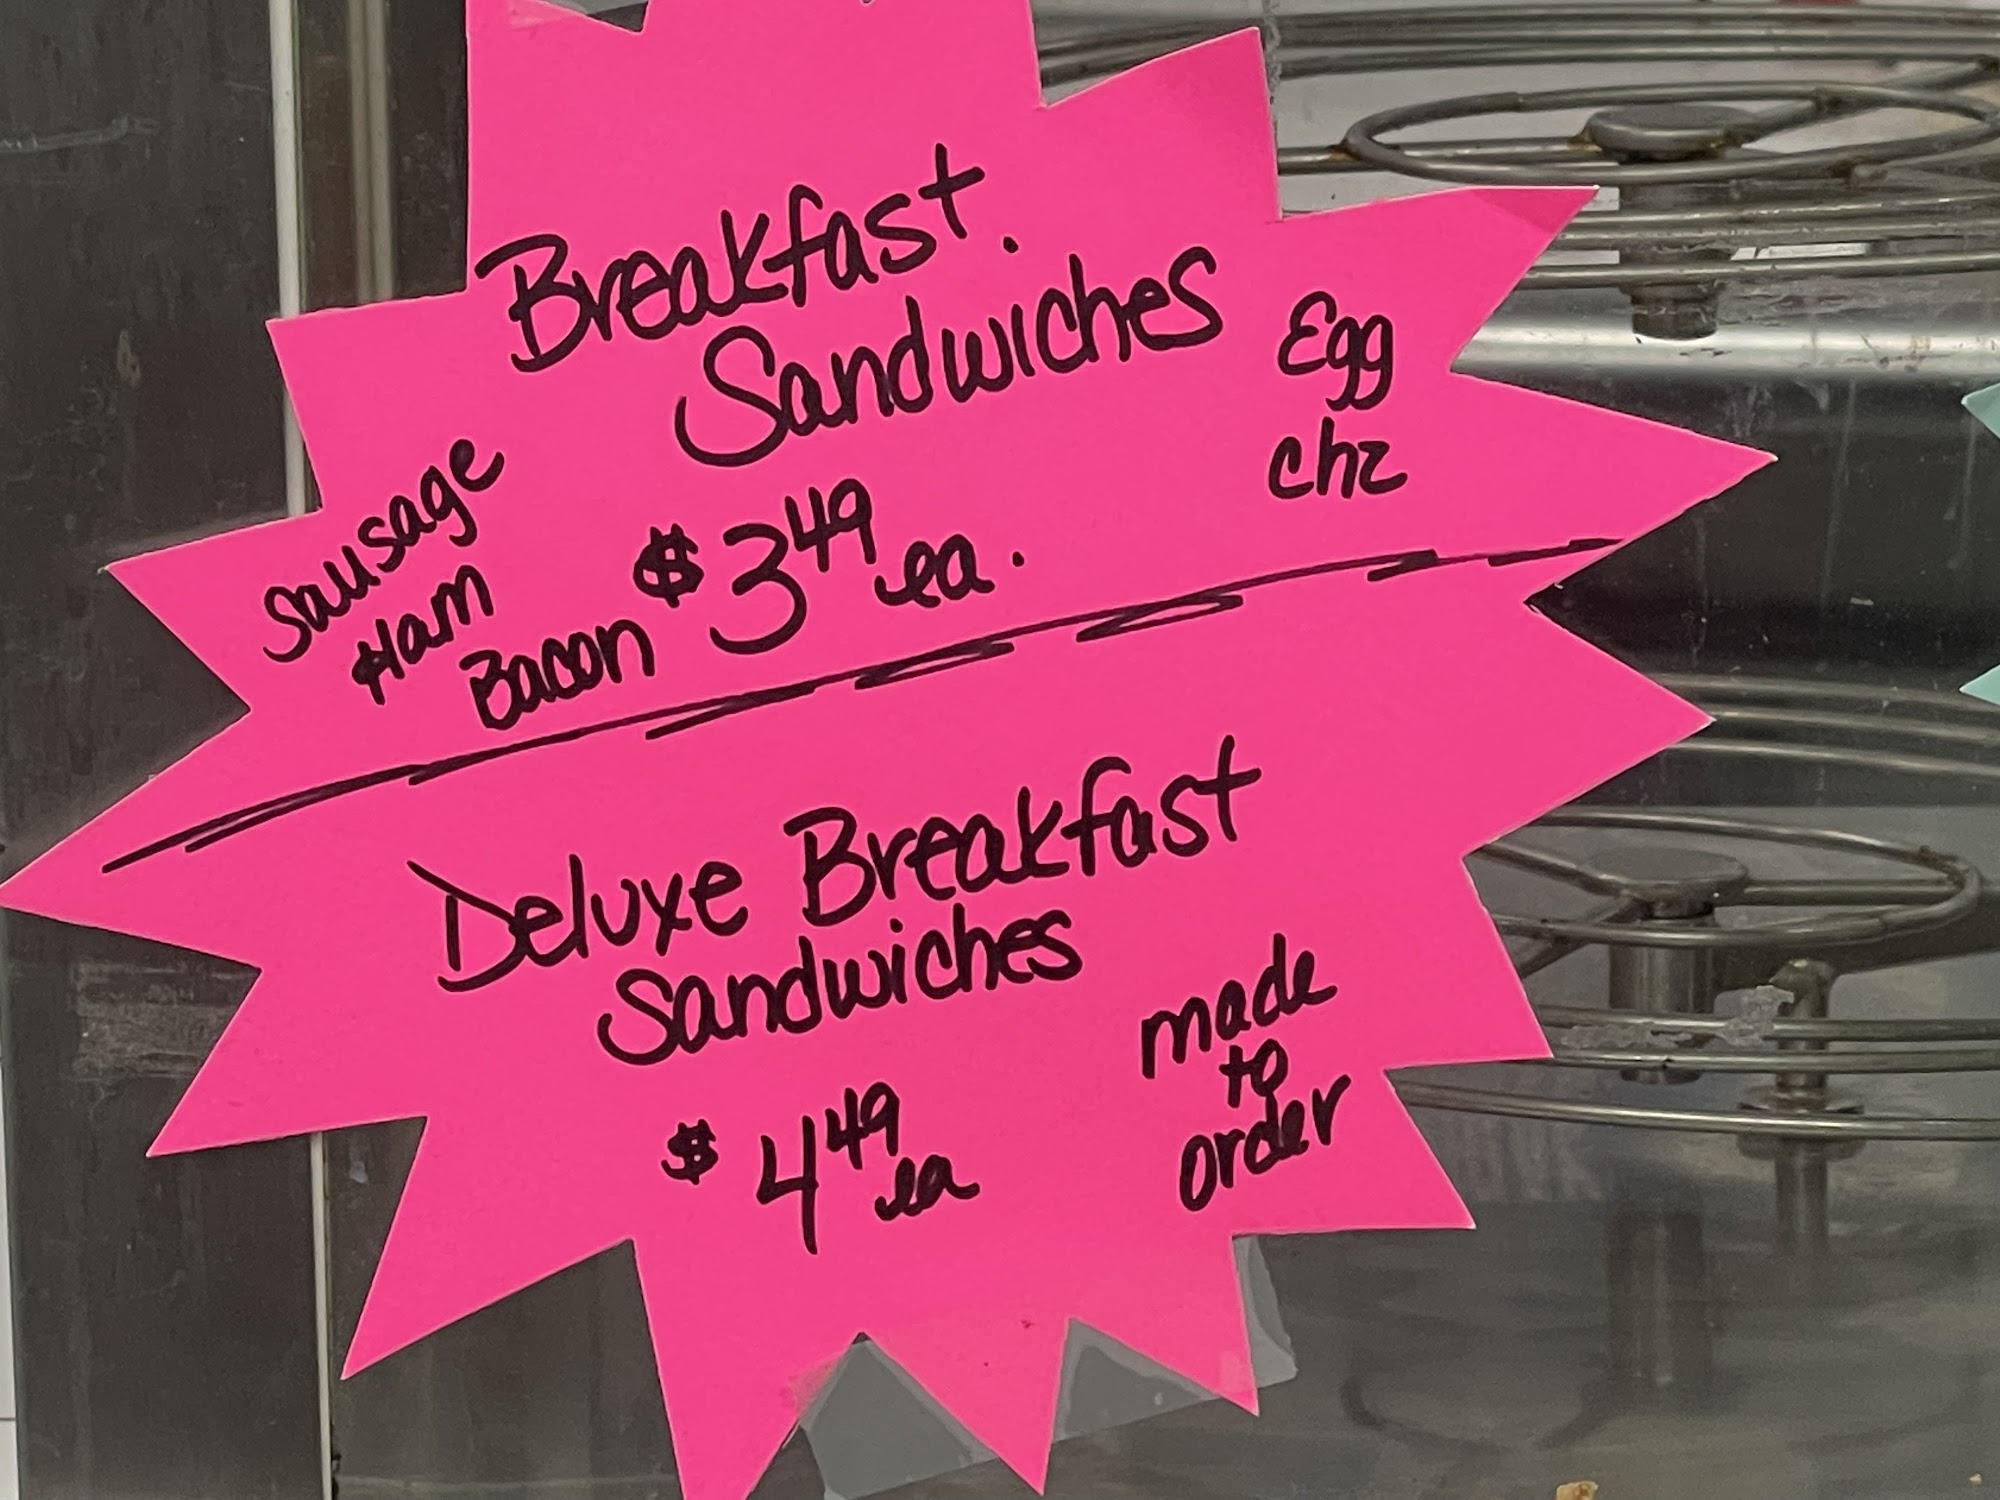 Breakfast.
Sandwiches
Egg
chz
Sausage
Ham
Bacon
$3.49 ea.
Deluxe Breakfast
Sandwiches
$4.49 ea
made
to
order